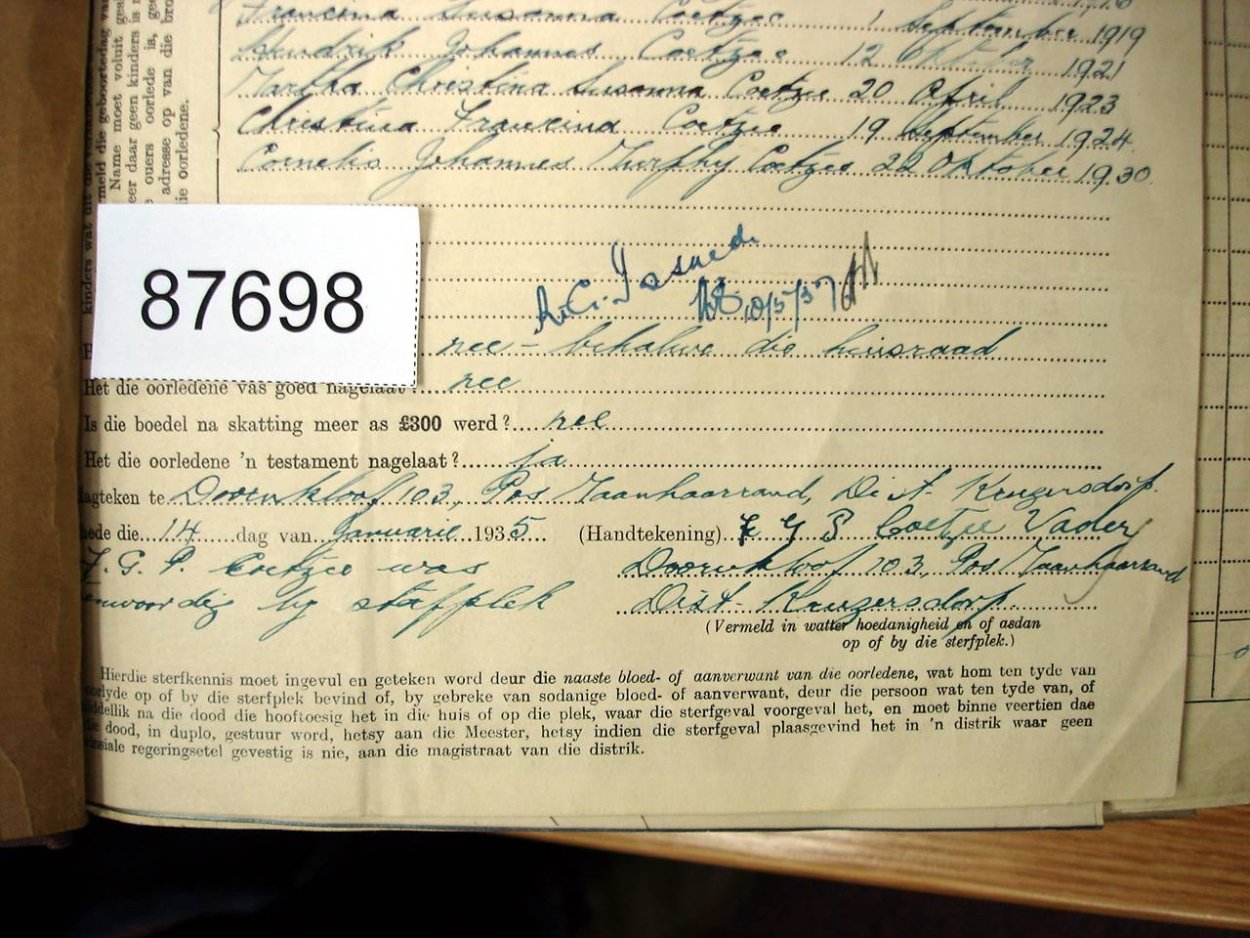 Francina Susanna Coetzee 1 September 1919
Hendrik Johannes Coetzee 12 Oktober 1921
Martha Christina Susanna Coetzee 20 April 1923
Christina Francina Coetzee 19 September 1924
Cornelis Johannes Murphy Coetzee 22 Oktober 1930
meld die geboortedag
Name moet voluit
eer daar geen kinders is
ouers oorlede is,
adresse op van die
ie oorledene.
87698
nee - behalwe die huisraad
Het die oorledene vas goed nagelaat? nee
Is die boedel na skatting meer as £300 werd? nee
Het die oorledene 'n testament nagelaat? ja
agteken te Doornkloof 103, Pos Maanhaarrand, Dist. Krugersdorp.
hede die 14 dag van Januarie 1935 (Handtekening) F G P Coetzee Vader
F. G. P. Coetzee was Doornkloof 103, Pos Maanhaarrand
enwoordig by stafplek Dist. Krugersdorp.
(Vermeld in watter hoedanigheid en of asdan
op of by die sterfplek.)
Hierdie sterfkennis moet ingevul en geteken word deur die naaste bloed- of aanverwant van die oorledene, wat hom ten tyde van
oorlyde op of by die sterfplek bevind of, by gebreke van sodanige bloed- of aanverwant, deur die persoon wat ten tyde van, of
iddellik na die dood die hooftoesig het in die huis of op die plek, waar die sterfgeval voorgeval het, en moet binne veertien dae
die dood, in duplo, gestuur word, hetsy aan die Meester, hetsy indien die sterfgeval plaasgevind het in 'n distrik waar geen
nsiale regeringsetel gevestig is nie, aan die magistraat van die distrik.